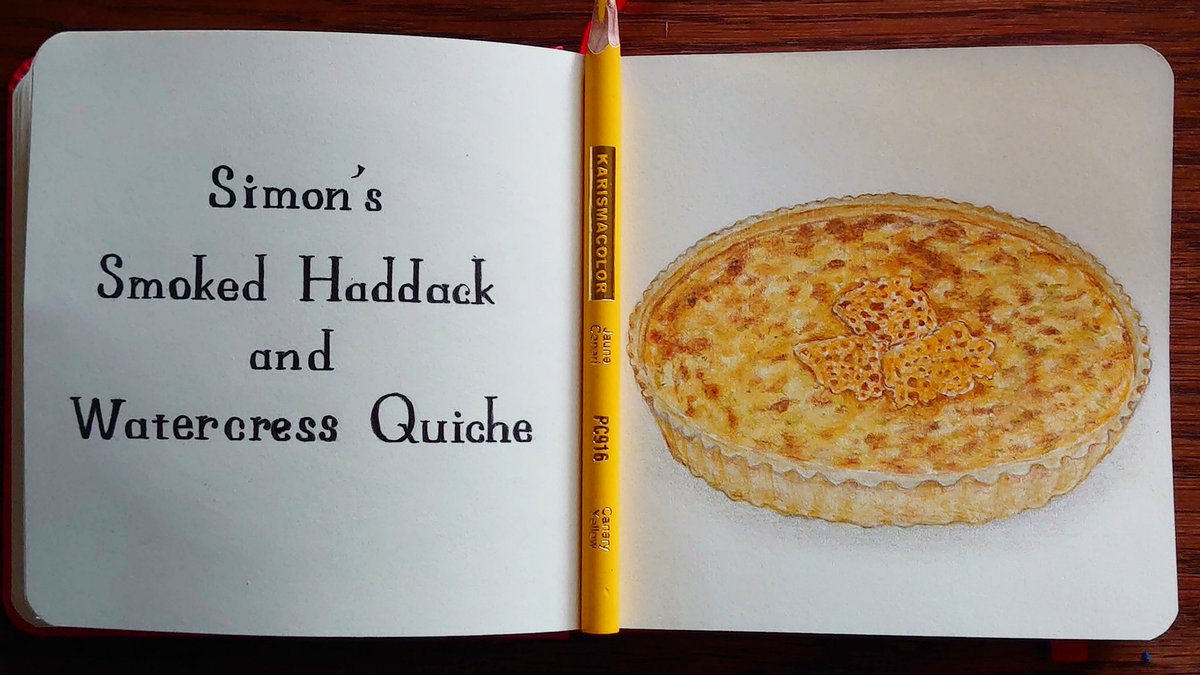 Simon's
Smoked Haddack
and
Watercress Quiche
KARISMACOLOR
Jaune
Canari
PC916
Canary
Yellow